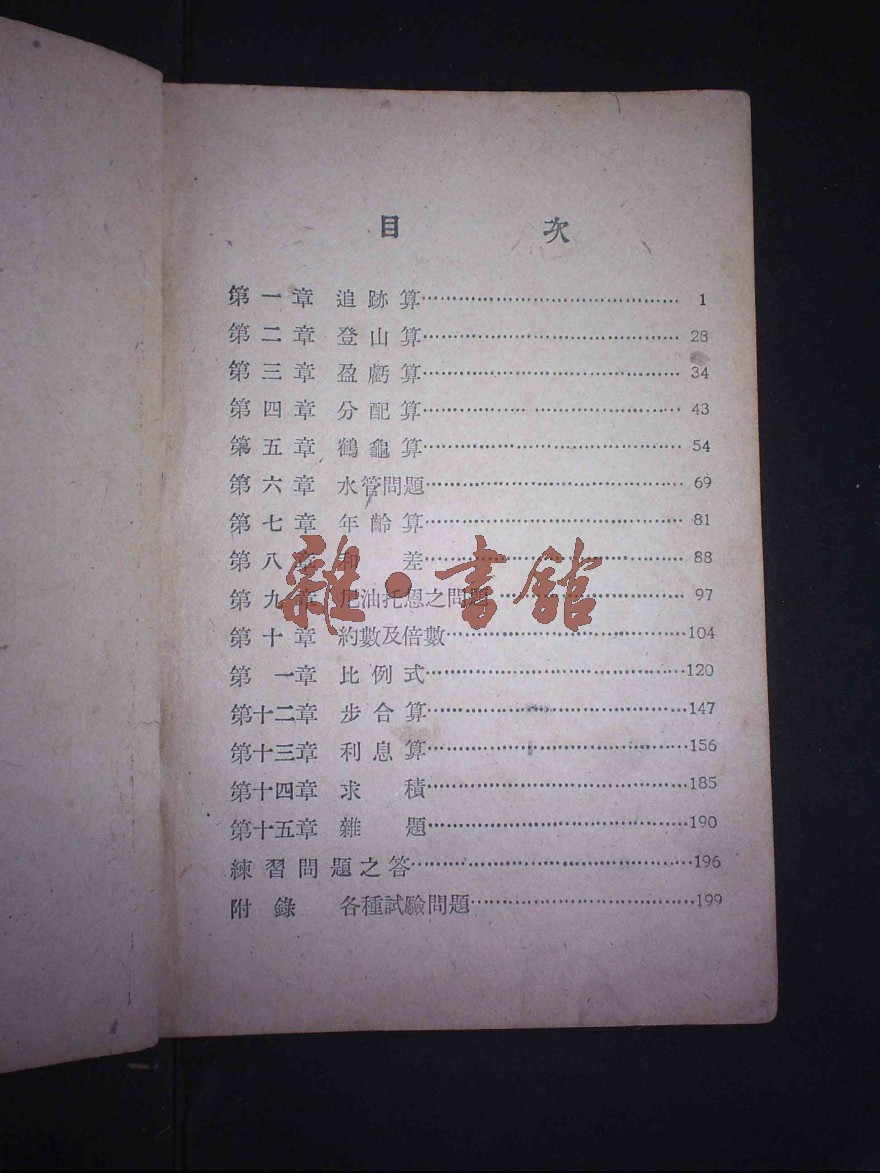 目 次
第一章 追跡算 1
第二章 登山算 28
第三章 盈虧算 34
第四章 分配算 43
第五章 鶴龜算 54
第六章 水管問題 69
第七章 年齡算 81
第八章 和差 88
第九章 尼油托恩之問題 97
第十章 約數及倍數 104
第 一章 比例式 120
第十二章 步合算 147
第十三章 利息算 156
第十四章 求積 185
第十五章 雜題 190
練習問題之答 196
附錄 各種試驗問題 199
雜·書館